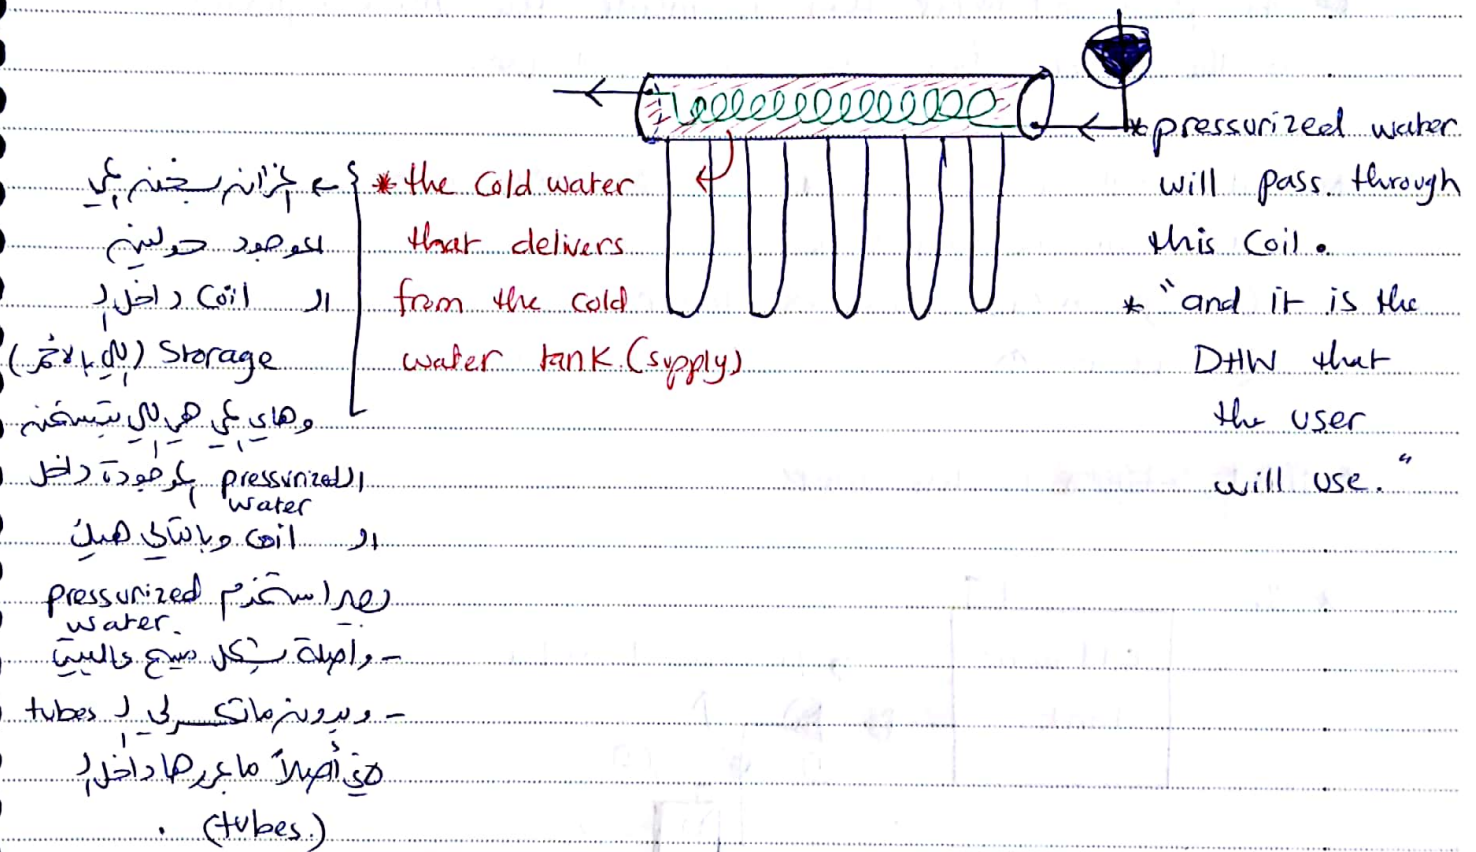 * pressurized water
will pass through
this Coil.
* "and it is the
DHW that
the user
will use."
* the Cold water
that delivers
from the cold
water tank (supply)
بسخن
الموجود حولين
ال Coil داخل ال
Storage (اللي بالاحمر)
وهاي هي اللي بتسخن
ال pressurized water الموجودة داخل
ال coil وبالتالي هيك
بصير استخدم pressurized
water.
- واصلة بشكل منيح عالبيت
- وبدون ما تكسرلي ال tubes
هي أصلاً ما بمررها داخل ال
(tubes).